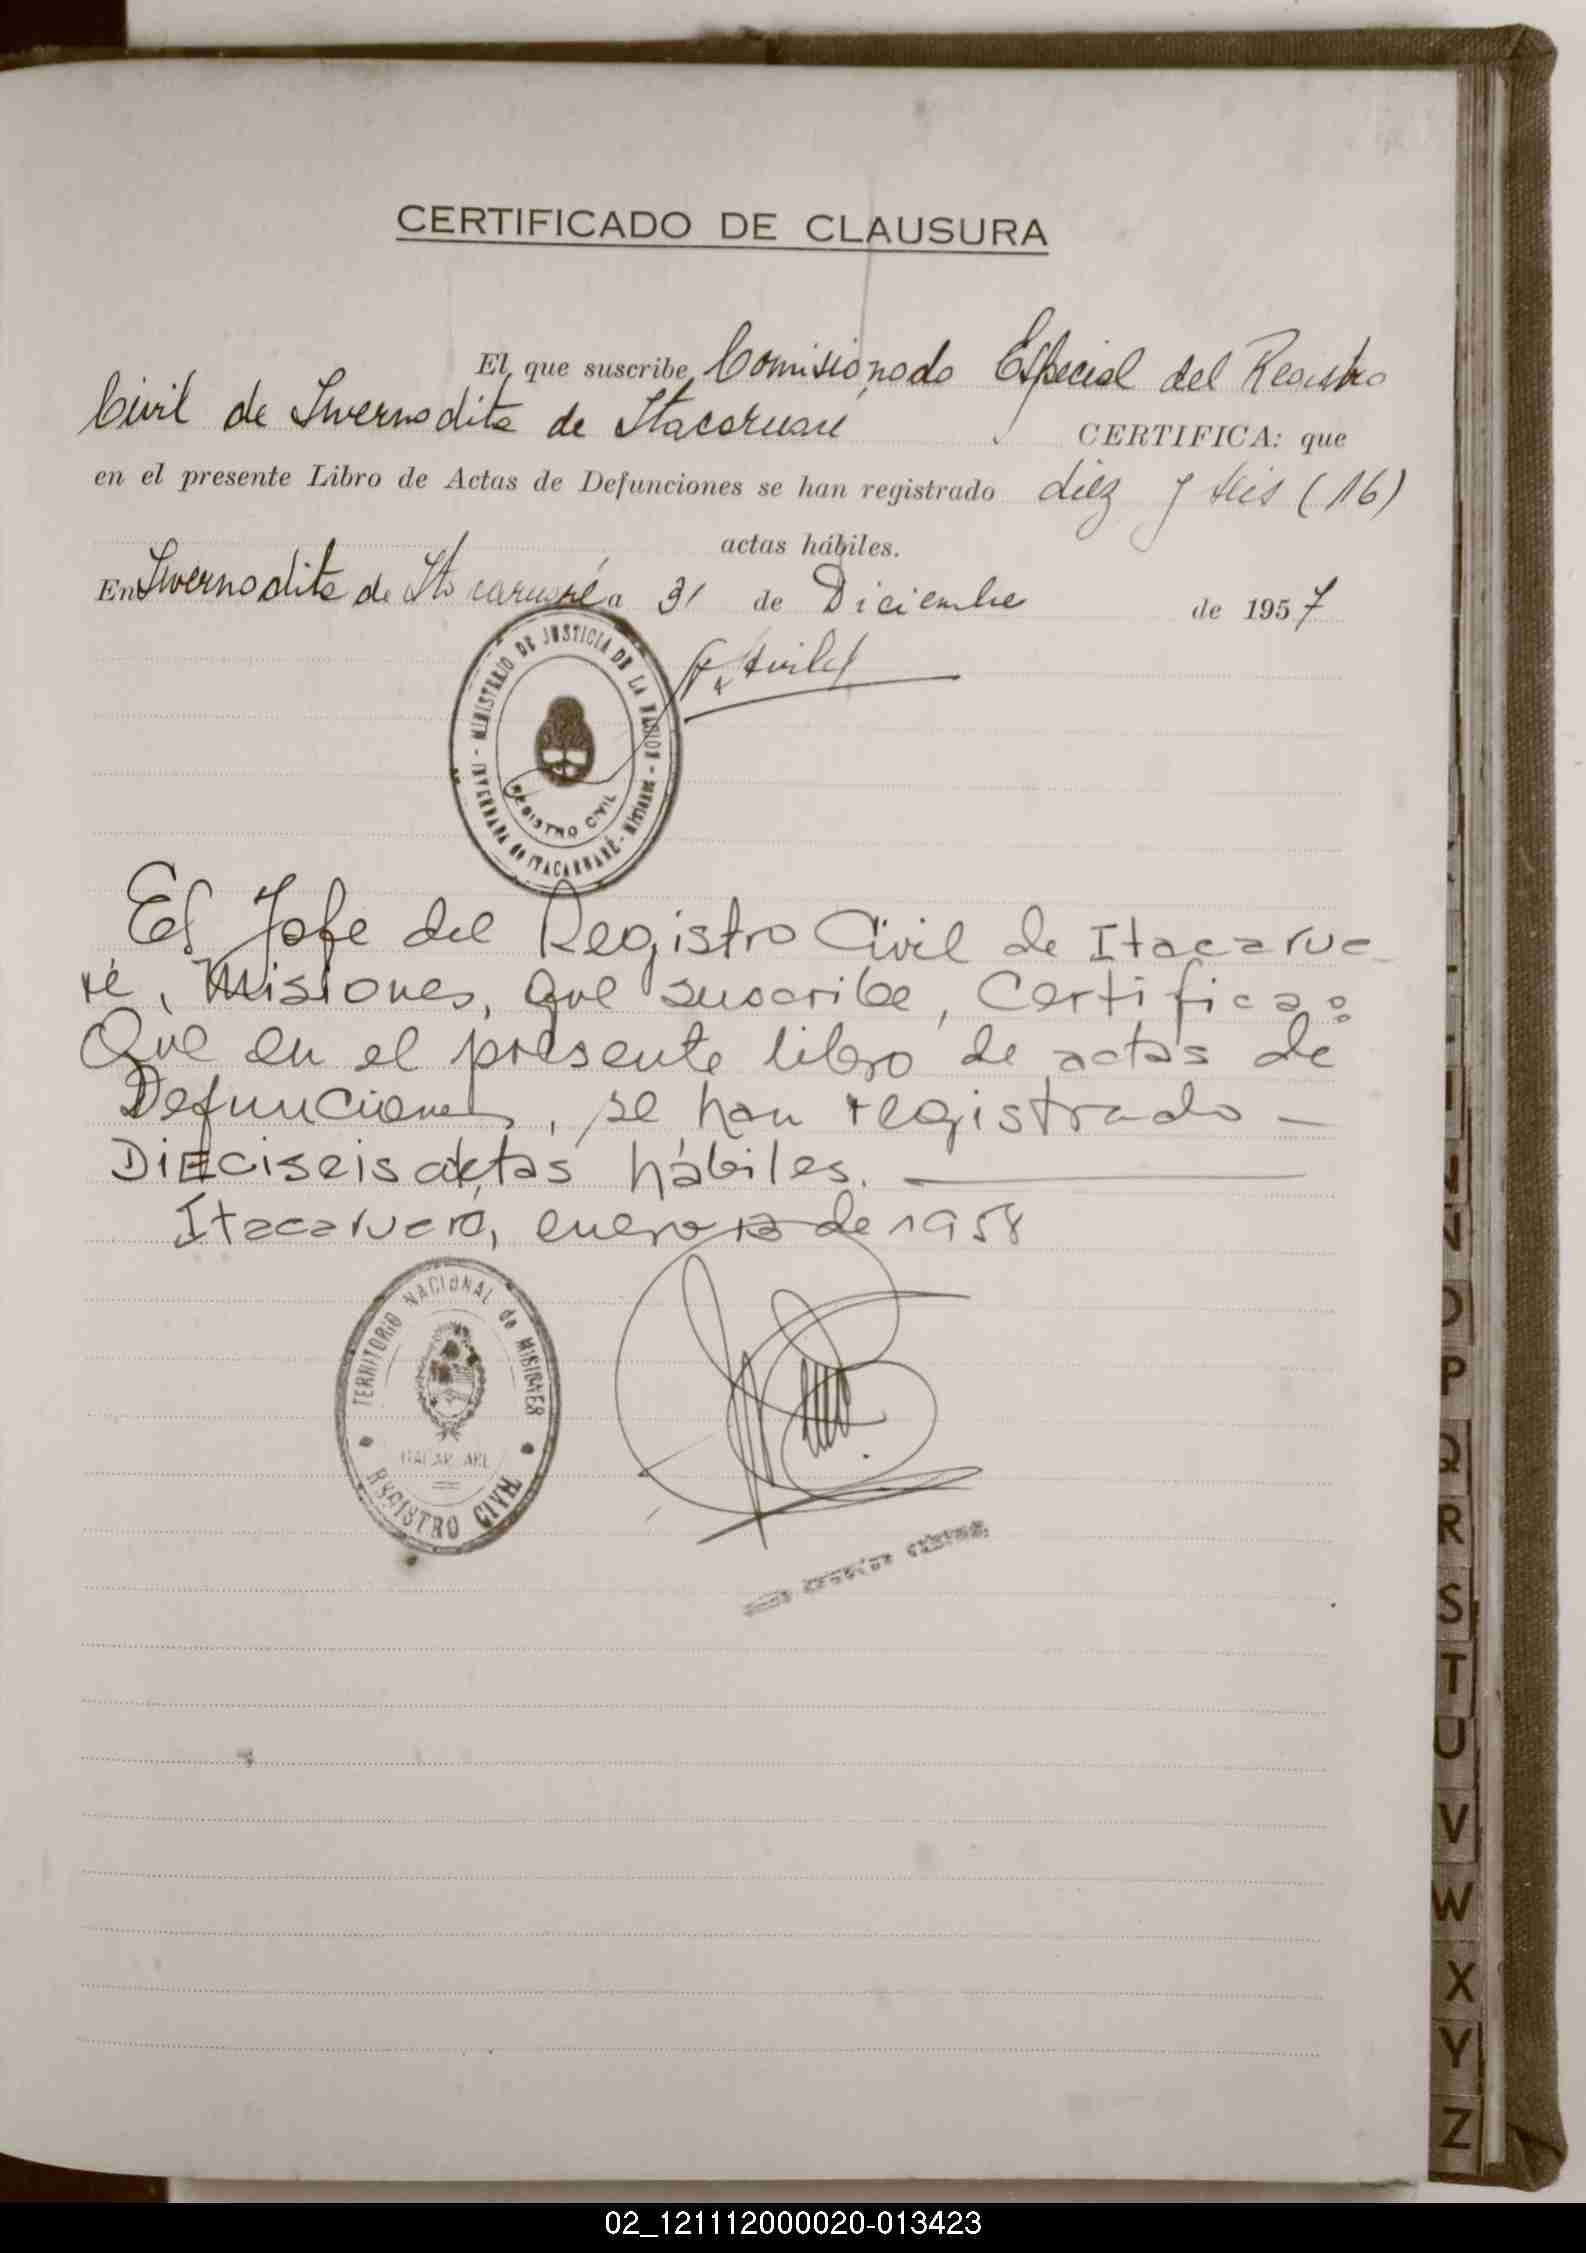 CERTIFICADO DE CLAUSURA
El que suscribe Comisionado Especial del Registro
Civil de Invernadita de Itacaruaré CERTIFICA: que
en el presente Libro de Actas de Defunciones se han registrado diez y seis (16)
actas hábiles.
En Invernadita de Itacaruaré a 31 de Diciembre de 1957
MINISTERIO DE JUSTICIA DE LA NACION - MISIONES - INVERNADA de ITACARUARÉ -
REGISTRO CIVIL
El Jefe del Registro Civil de Itacarua
ré, Misiones, que suscribe, Certifica:
Que en el presente libro de actas de
Defunciones, se han registrado —
DiEciseis actas hábiles. —
Itacaruaré, enero 13 de 1958
TERRITORIO NACIONAL de MISIONES
REGISTRO CIVIL
N
O
P
Q
R
S
T
U
V
W
X
Y
Z
02_121112000020-013423